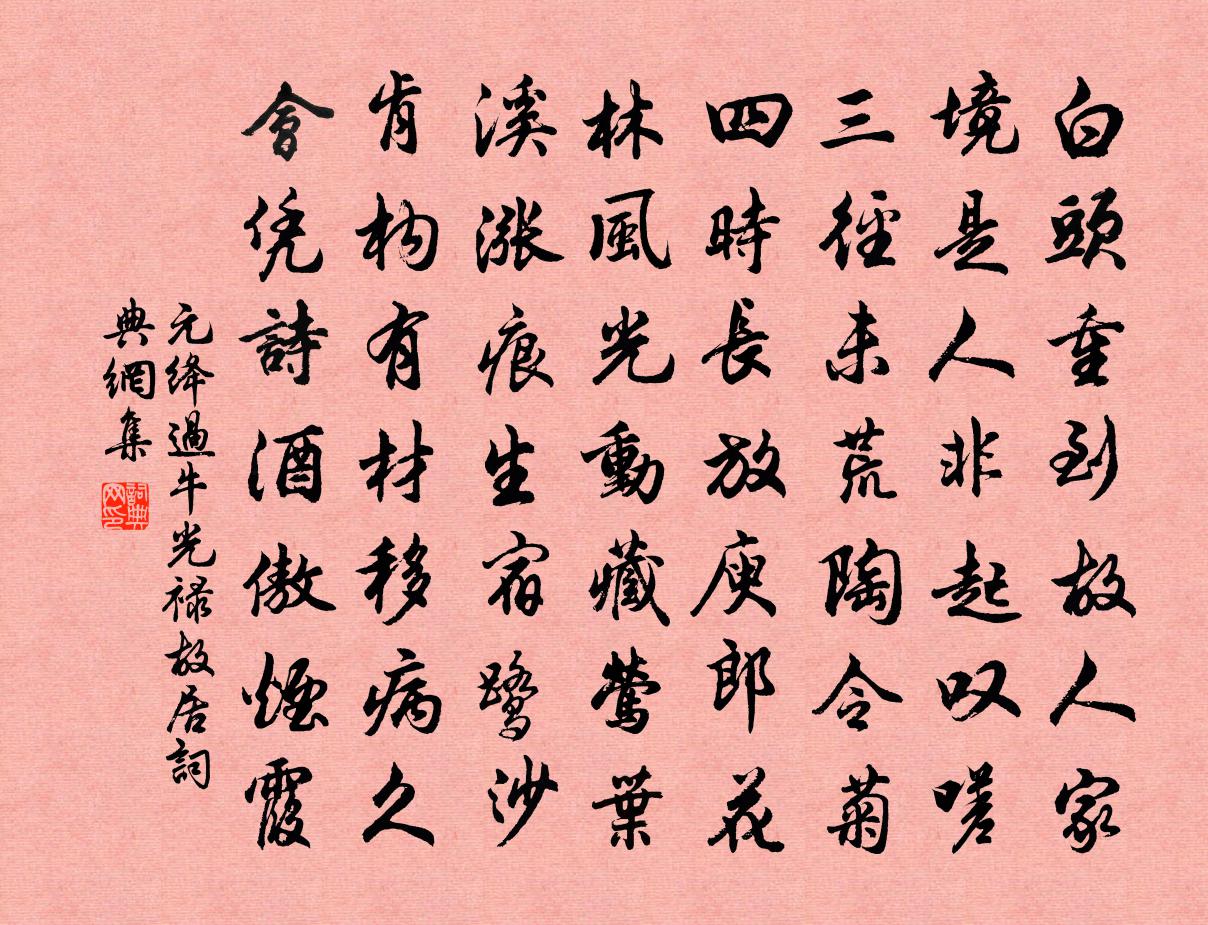 白頭重到故人家
境是人非起叹嗟
三徑未荒陶令菊
四時長放庾郎花
林風光動藏鶯葉
溪漲痕生宿鷺沙
肯构有材移病久
會凭詩酒傲煙霞
元绛過牛光禄故居詞
典網集
詞典网印